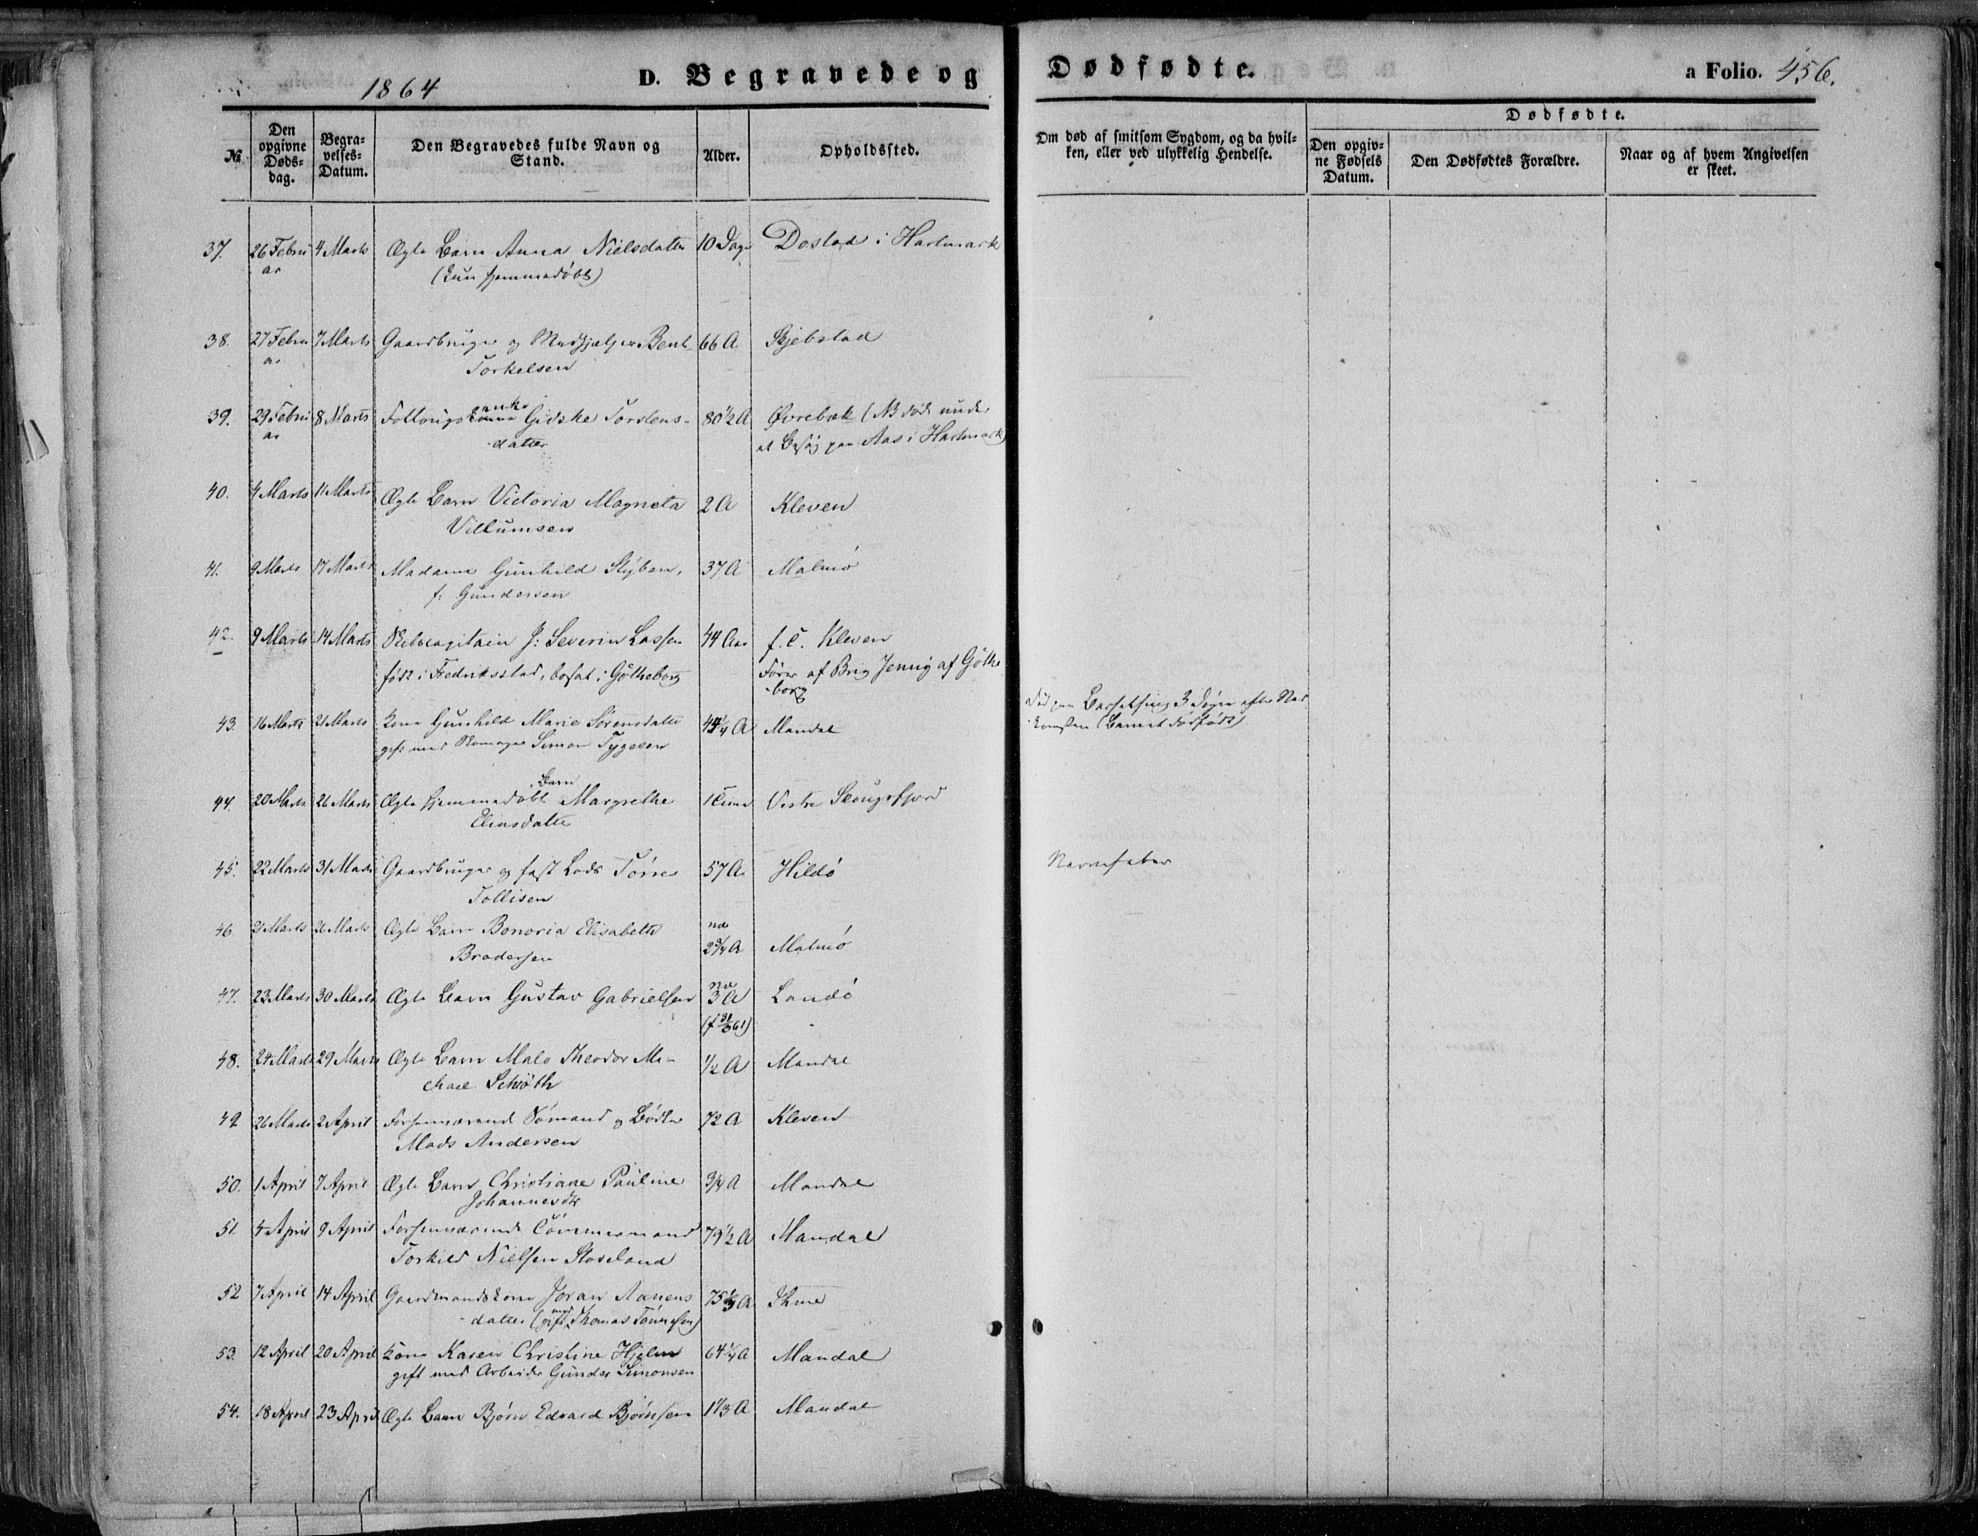 1864
D. Begravede og Dødfødte. a Folio. 456.
No.
Den opgivne Døds-dag.
Begra-velses-Datum.
Den Begravedes fulde Navn og Stand.
Alder.
Opholdssted.
Om død af smitsom Sygdom, og da hvil-ken, eller ved ulykkelig Hendelse.
Dødfødte.
Den opgiv-ne Fødsels Datum.
Den Dødfødtes Forældre.
Naar og af hvem Angivelsen er skeet.
37. 26 Febru 4 Marts Ægte Barn Anna Nielsdatter 10 Dage Dostad i Hartmark
ar (kun hjemmedøbt)
38. 27 Febru 7 Marts Gaardbruger og Medhjelper Bent 66 A Skjebstad
ar Torkelsen
39. 29 Febru 8 Marts Follougsenke Gidske Torstens- 80 1/2 A Øvrebøk (NB død under
ar datter et Besøg paa Aas i Hartmark)
40. 4 Marts 11 Marts Ægte Barn Victoria Magneta 2 A Kleven
Villumsen
41. 9 Marts 17 Marts Madame Gunhild Stÿben, 37 A Malmø
f: Gundersen
42. 9 Marts 14 Marts Skibscapitain J: Severin Lassen 44 Aar f. t. Kleven
født i Fredriksstad, bosat i Gøtheborg Fører af Brig Jenny af Gøthe
-borg
43. 16 Marts 21 Marts Kone Gunhild Marie Sørensdatter 44 1/4 A Mandal Død paa Barselseng 3 Døgn efter Ned
gift med Skomager Simon Tygesen -komsten (Barnet dødfødt)
44. 20 Marts 26 Marts Ægte hjemmedøbt Barn Margrethe 1 Time Vestre Skougsfjord
Eliasdatter
45. 22 Marts 31 Marts Gaardbruger og fast Lods Tørres 57 A Hildø Nervefeber
Tollisen
46. 21 Marts 26 Marts Ægte Barn Bonoria Elisabeth 2 3/4 A Malmø
Brodersen
47. 23 Marts 30 Marts Ægte Barn Gustav Gabrielsen 3 A Landø
48. 24 Marts 29 Marts Ægte Barn Malo Theodor Mi- 1/2 A Mandal
chael Schiøth
49 26 Marts 2 April Forhenværende Sømand og Bødker 72 A Kleven
Mads Andersen
50. 1 April 7 April Ægte Barn Christiane Pauline 3/4 A Mandal
Johannesdtr
51. 4 April 9 April Forhenværende Tømmermand 79 1/2 A Mandal
Torkild Nielsen Stoseland
52 7 April 14 April Gaardmandskone Jøran Aanens 75 1/3 A Ihme
-datter (gift med Thomas Tønnesen)
53. 12 April 20 April Kone Karen Christine Hjelm 64 1/4 A Mandal
gift med Arbeider Gunder Simonsen
54. 18 April 23 April Ægte Barn Bjørn Edvard Bjørnsen 1 1/3 A Mandal